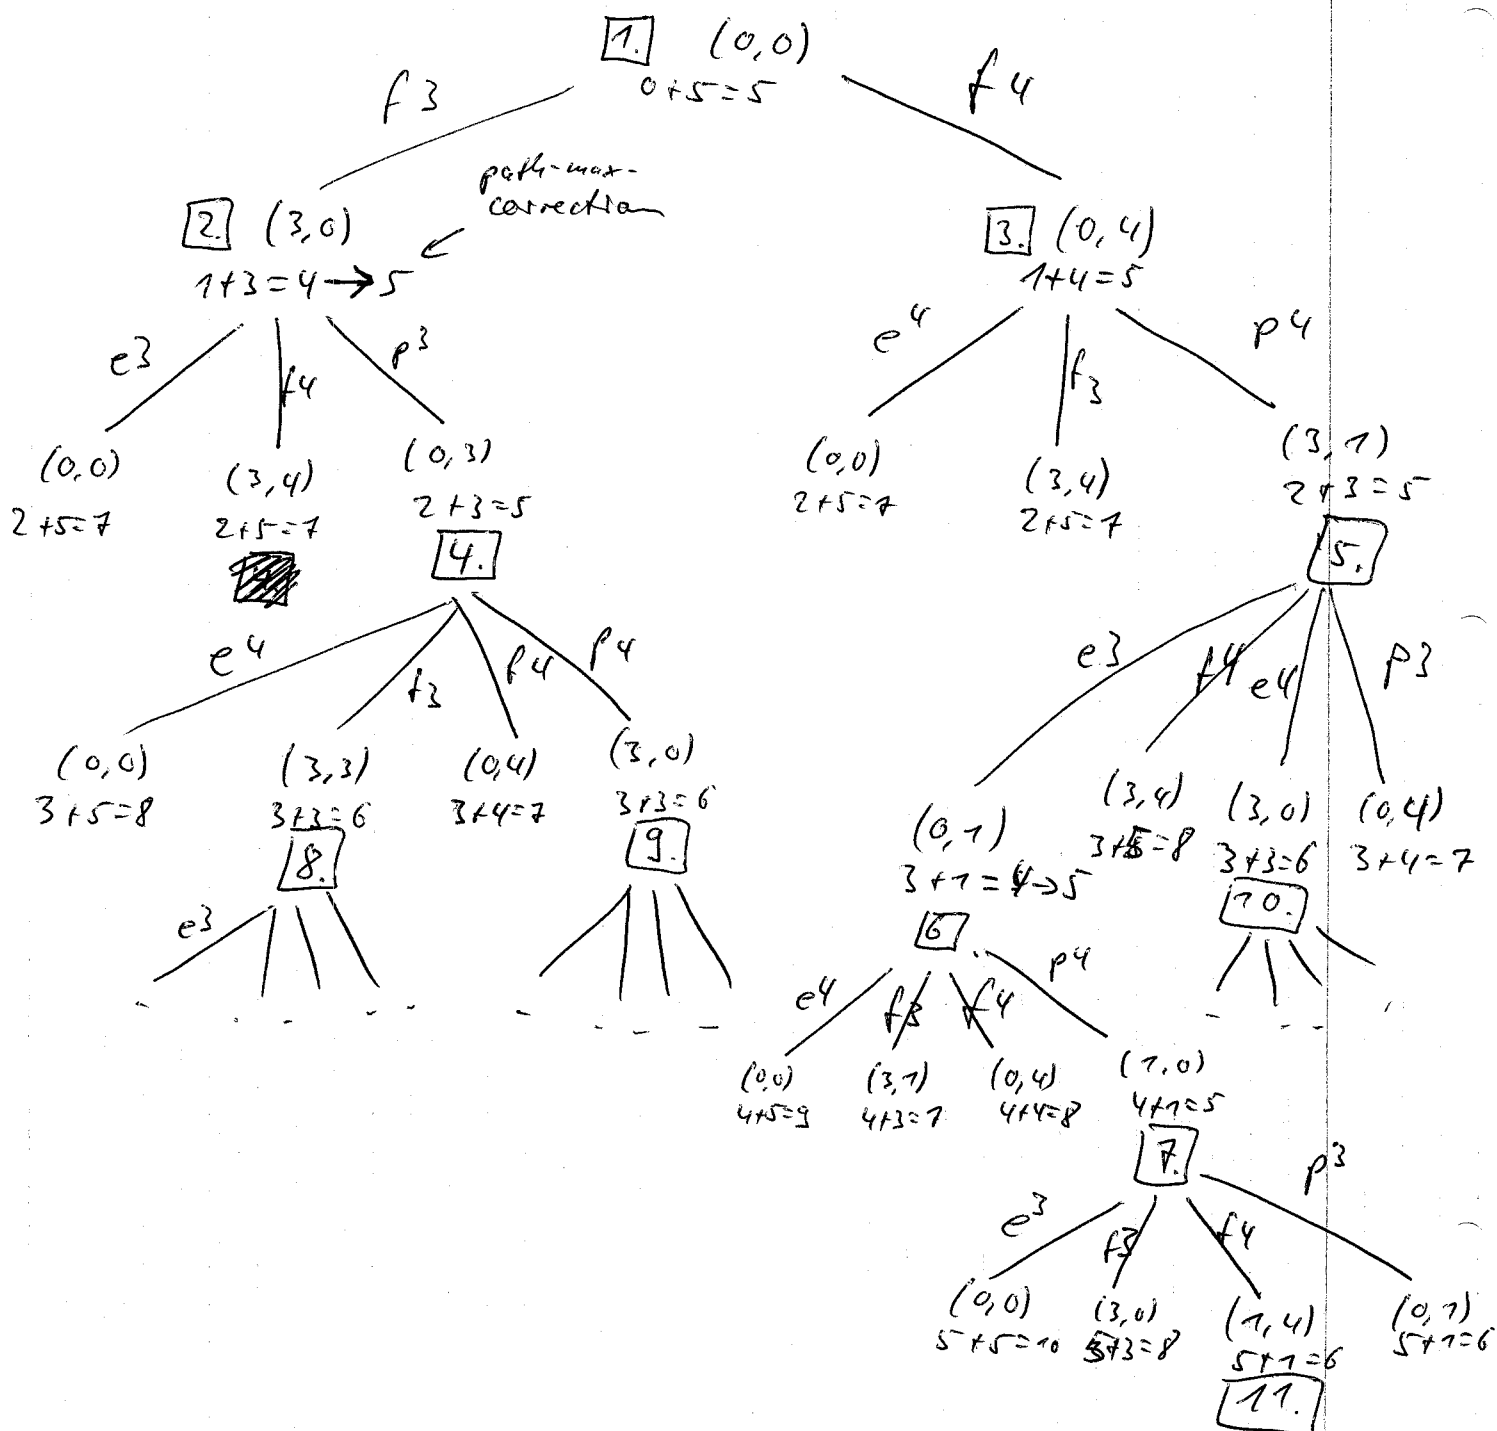 1. (0,0)
0+5=5
f3
f4
path-max-
correction
2. (3,0)
1+3=4→5
3. (0,4)
1+4=5
e3
f4
p3
e4
f3
p4
(0,0)
2+5=7
(3,4)
2+5=7
(0,3)
2+3=5
4.
(0,0)
2+5=7
(3,4)
2+5=7
(3,1)
2+3=5
5.
e4
f3
f4
p4
e3
f4
e4
p3
(0,0)
3+5=8
(3,3)
3+3=6
8.
(0,4)
3+4=7
(3,0)
3+3=6
9.
(0,1)
3+1=4→5
6
(3,4)
3+5=8
(3,0)
3+3=6
10.
(0,4)
3+4=7
e3
e4
f3
f4
p4
(0,0)
4+5=9
(3,1)
4+3=7
(0,4)
4+4=8
(1,0)
4+1=5
7.
e3
f3
f4
p3
(0,0)
5+5=10
(3,0)
5+3=8
(1,4)
5+1=6
11.
(0,1)
5+1=6